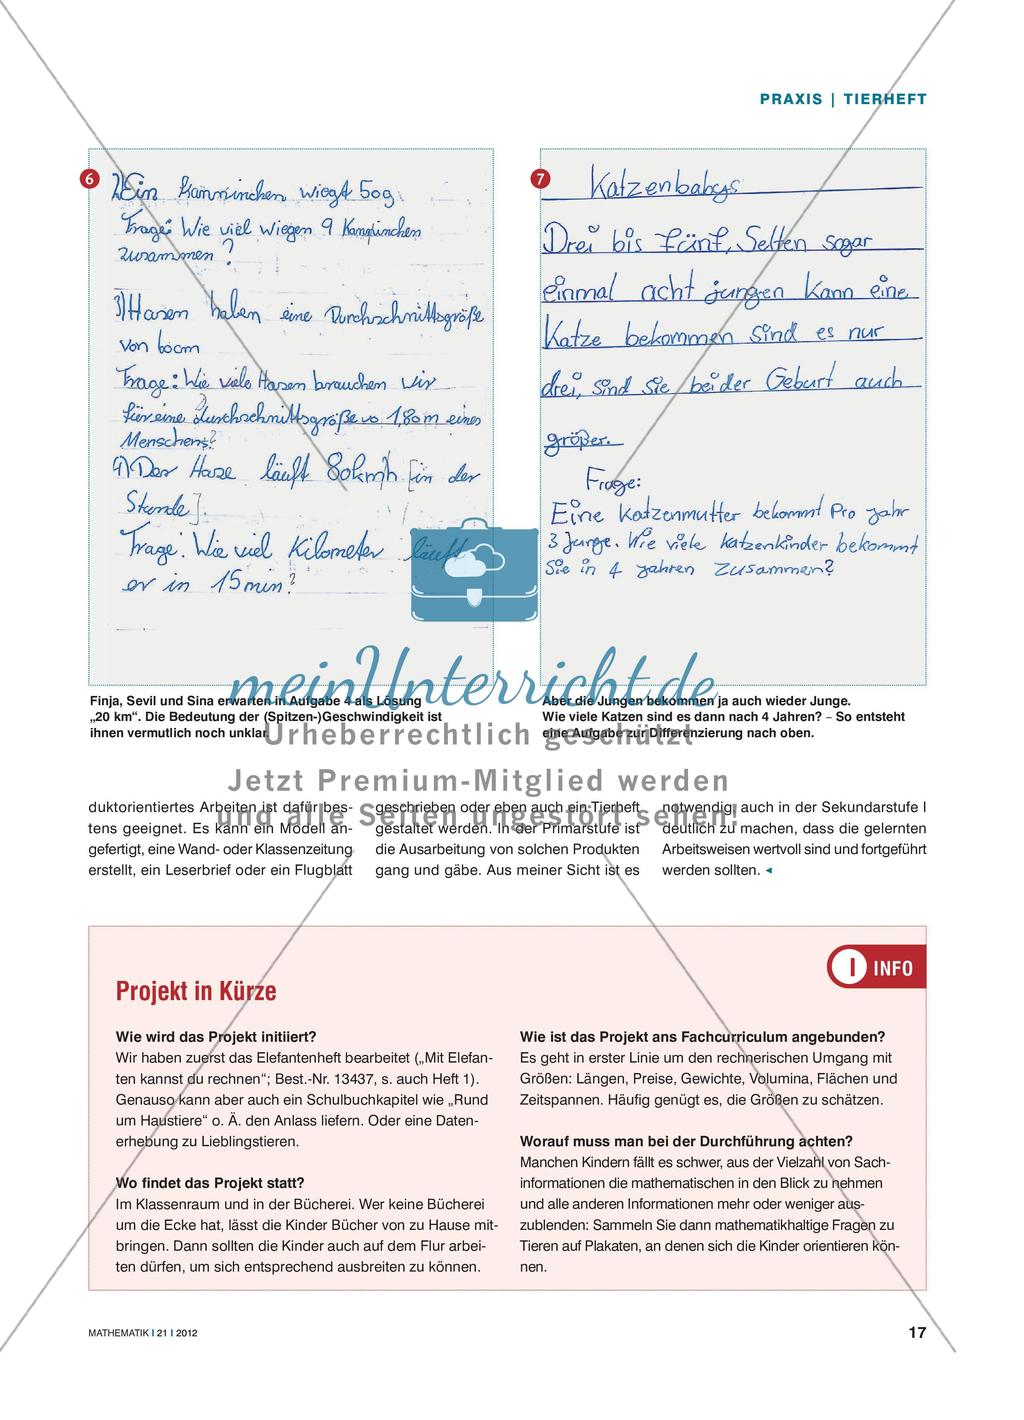 PRAXIS | TIERHEFT
6
2) Ein Kanninchen wiegt 50g
Frage: Wie viel wiegen 9 Kanninchen
zusammen?
3) Hasen haben eine Durchschnittsgröße
von 60cm
Frage: Wie viele Hasen brauchen wir
für eine durchschnittsgröße vo 1,80m eines
Menschens?
4) Der Hase läuft 80kmh [in der
Stunde].
Frage: Wie viel Kilometer läuft
er in 15min?
7
Katzenbabys
Drei bis fünf, Selten sogar
einmal acht jungen kann eine
Katze bekommen sind es nur
drei, sind sie bei der Geburt auch
größer.
Frage:
Eine Katzenmutter bekommt Pro Jahr
3 Junge. Wie viele Katzenkinder bekommt
Sie in 4 Jahren Zusammen?
Finja, Sevil und Sina erwarten in Aufgabe 4 als Lösung
„20 km“. Die Bedeutung der (Spitzen-)Geschwindigkeit ist
ihnen vermutlich noch unklar.
Aber die Jungen bekommen ja auch wieder Junge.
Wie viele Katzen sind es dann nach 4 Jahren? – So entsteht
eine Aufgabe zur Differenzierung nach oben.
meinUnterricht.de
Urheberrechtlich geschützt
Jetzt Premium-Mitglied werden
und alle Seiten ungestört sehen!
duktorientiertes Arbeiten ist dafür bes-
tens geeignet. Es kann ein Modell an-
gefertigt, eine Wand- oder Klassenzeitung
erstellt, ein Leserbrief oder ein Flugblatt
geschrieben oder eben auch ein Tierheft
gestaltet werden. In der Primarstufe ist
die Ausarbeitung von solchen Produkten
gang und gäbe. Aus meiner Sicht ist es
notwendig, auch in der Sekundarstufe I
deutlich zu machen, dass die gelernten
Arbeitsweisen wertvoll sind und fortgeführt
werden sollten.
I INFO
Projekt in Kürze
Wie wird das Projekt initiiert?
Wir haben zuerst das Elefantenheft bearbeitet („Mit Elefan-
ten kannst du rechnen“; Best.-Nr. 13437, s. auch Heft 1).
Genauso kann aber auch ein Schulbuchkapitel wie „Rund
um Haustiere“ o. Ä. den Anlass liefern. Oder eine Daten-
erhebung zu Lieblingstieren.
Wo findet das Projekt statt?
Im Klassenraum und in der Bücherei. Wer keine Bücherei
um die Ecke hat, lässt die Kinder Bücher von zu Hause mit-
bringen. Dann sollten die Kinder auch auf dem Flur arbei-
ten dürfen, um sich entsprechend ausbreiten zu können.
Wie ist das Projekt ans Fachcurriculum angebunden?
Es geht in erster Linie um den rechnerischen Umgang mit
Größen: Längen, Preise, Gewichte, Volumina, Flächen und
Zeitspannen. Häufig genügt es, die Größen zu schätzen.
Worauf muss man bei der Durchführung achten?
Manchen Kindern fällt es schwer, aus der Vielzahl von Sach-
informationen die mathematischen in den Blick zu nehmen
und alle anderen Informationen mehr oder weniger aus-
zublenden: Sammeln Sie dann mathematikhaltige Fragen zu
Tieren auf Plakaten, an denen sich die Kinder orientieren kön-
nen.
MATHEMATIK I 21 I 2012
17